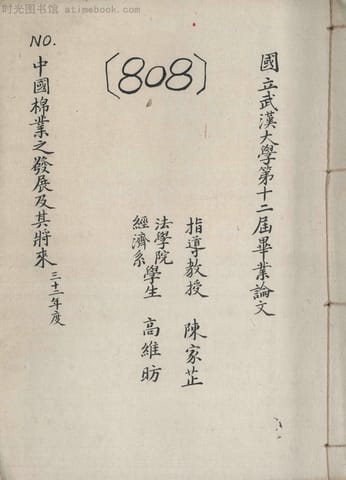 时光图书馆 - atimebook.com
〔808〕
國立武漢大學第十二屆畢業論文
指導教授 陳家芷
法學院
經濟系
學生 高維昉
NO.
中國棉業之發展及其將來
三十二年度